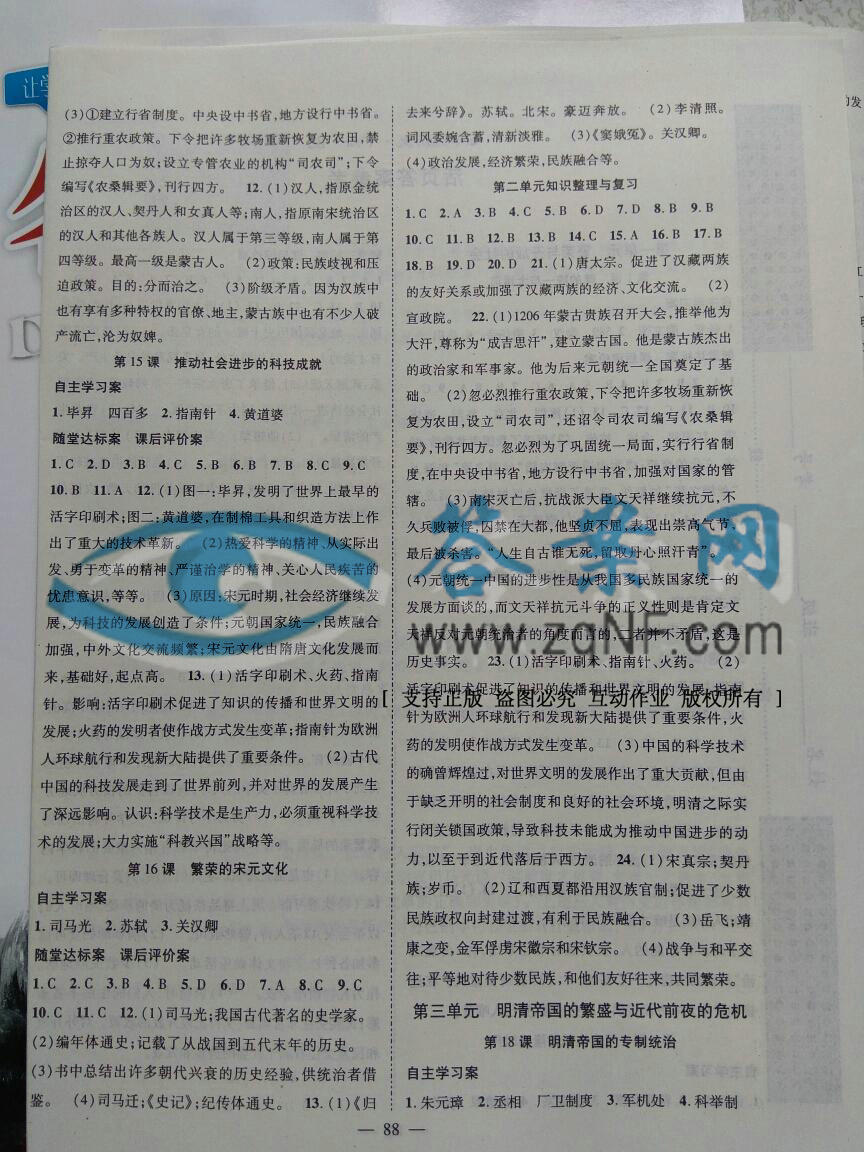 (3)①建立行省制度。中央设中书省,地方设行中书省。
②推行重农政策。下令把许多牧场重新恢复为农田,禁
止掠夺人口为奴;设立专管农业的机构“司农司”;下令
编写《农桑辑要》,刊行四方。 12.(1)汉人,指原金统
治区的汉人、契丹人和女真人等;南人,指原南宋统治区
的汉人和其他各族人。汉人属于第三等级,南人属于第
四等级。最高一级是蒙古人。 (2)政策:民族歧视和压
迫政策。目的:分而治之。 (3)阶级矛盾。因为汉族中
也有享有多种特权的官僚、地主,蒙古族中也有不少人破
产流亡,沦为奴婢。
第15课 推动社会进步的科技成就
自主学习案
1.毕昇 四百多 2.指南针 4.黄道婆
随堂达标案 课后评价案
1.C 2.D 3.B 4.C 5.B 6.B 7.B 8.C 9.C
10.B 11.A 12.(1)图一:毕昇,发明了世界上最早的
活字印刷术;图二:黄道婆,在制棉工具和织造方法上作
出了重大的技术革新。 (2)热爱科学的精神、从实际出
发、勇于变革的精神、严谨治学的精神、关心人民疾苦的
忧患意识,等等。 (3)原因:宋元时期,社会经济继续发
展,为科技的发展创造了条件;元朝国家统一,民族融合
加强,中外文化交流频繁;宋元文化由隋唐文化发展而
来,基础好,起点高。 13.(1)活字印刷术、火药、指南
针。影响:活字印刷术促进了知识的传播和世界文明的
发展;火药的发明者使作战方式发生变革;指南针为欧洲
人环球航行和发现新大陆提供了重要条件。 (2)古代
中国的科技发展走到了世界前列,并对世界的发展产生
了深远影响。认识:科学技术是生产力,必须重视科学技
术的发展;大力实施“科教兴国”战略等。
第16课 繁荣的宋元文化
自主学习案
1.司马光 2.苏轼 3.关汉卿
随堂达标案 课后评价案
1.C 2.C 3.B 4.B 5.D 6.D 7.A 8.C 9.C
10.C 11.C 12.(1)司马光;我国古代著名的史学家。
(2)编年体通史;记载了从战国到五代末年的历史。
(3)书中总结出许多朝代兴衰的历史经验,供统治者借
鉴。 (4)司马迁;《史记》;纪传体通史。 13.(1)《归
去来兮辞》。苏轼。北宋。豪迈奔放。 (2)李清照。
词风委婉含蓄,清新淡雅。 (3)《窦娥冤》。关汉卿。
(4)政治发展,经济繁荣,民族融合等。
第二单元知识整理与复习
1.C 2.A 3.B 4.C 5.B 6.D 7.D 8.B 9.B
10.C 11.B 12.B 13.B 14.C 15.A 16.B 17.B
18.B 19.D 20.D 21.(1)唐太宗。促进了汉藏两族
的友好关系或加强了汉藏两族的经济、文化交流。 (2)
宣政院。 22.(1)1206年蒙古贵族召开大会,推举他为
大汗,尊称为“成吉思汗”,建立蒙古国。他是蒙古族杰出
的政治家和军事家。他为后来元朝统一全国奠定了基
础。 (2)忽必烈推行重农政策,下令把许多牧场重新恢
复为农田,设立“司农司”,还诏令司农司编写《农桑辑
要》,刊行四方。忽必烈为了巩固统一局面,实行行省制
度,在中央设中书省,地方设行中书省,加强对国家的管
辖。 (3)南宋灭亡后,抗战派大臣文天祥继续抗元,不
久兵败被俘,囚禁在大都,他坚贞不屈,表现出崇高气节,
最后被杀害。“人生自古谁无死,留取丹心照汗青”。
(4)元朝统一中国的进步性是从我国多民族国家统一的
发展方面谈的,而文天祥抗元斗争的正义性则是肯定文
天祥反对元朝统治者的角度而言的,二者并不矛盾,这是
历史事实。 23.(1)活字印刷术、指南针、火药。 (2)
活字印刷术促进了知识的传播和世界文明的发展;指南
针为欧洲人环球航行和发现新大陆提供了重要条件,火
药的发明使作战方式发生变革。 (3)中国的科学技术
的确曾辉煌过,对世界文明的发展作出了重大贡献,但由
于缺乏开明的社会制度和良好的社会环境,明清之际实
行闭关锁国政策,导致科技未能成为推动中国进步的动
力,以至于到近代落后于西方。 24.(1)宋真宗;契丹
族;岁币。 (2)辽和西夏都沿用汉族官制;促进了少数
民族政权向封建过渡,有利于民族融合。 (3)岳飞;靖
康之变,金军俘虏宋徽宗和宋钦宗。 (4)战争与和平交
往;平等地对待少数民族,和他们友好往来,共同繁荣。
第三单元 明清帝国的繁盛与近代前夜的危机
第18课 明清帝国的专制统治
自主学习案
1.朱元璋 2.丞相 厂卫制度 3.军机处 4.科举制
— 88 —
答案网
www.zqNF.com
[ 支持正版 盗图必究 互动作业 版权所有 ]